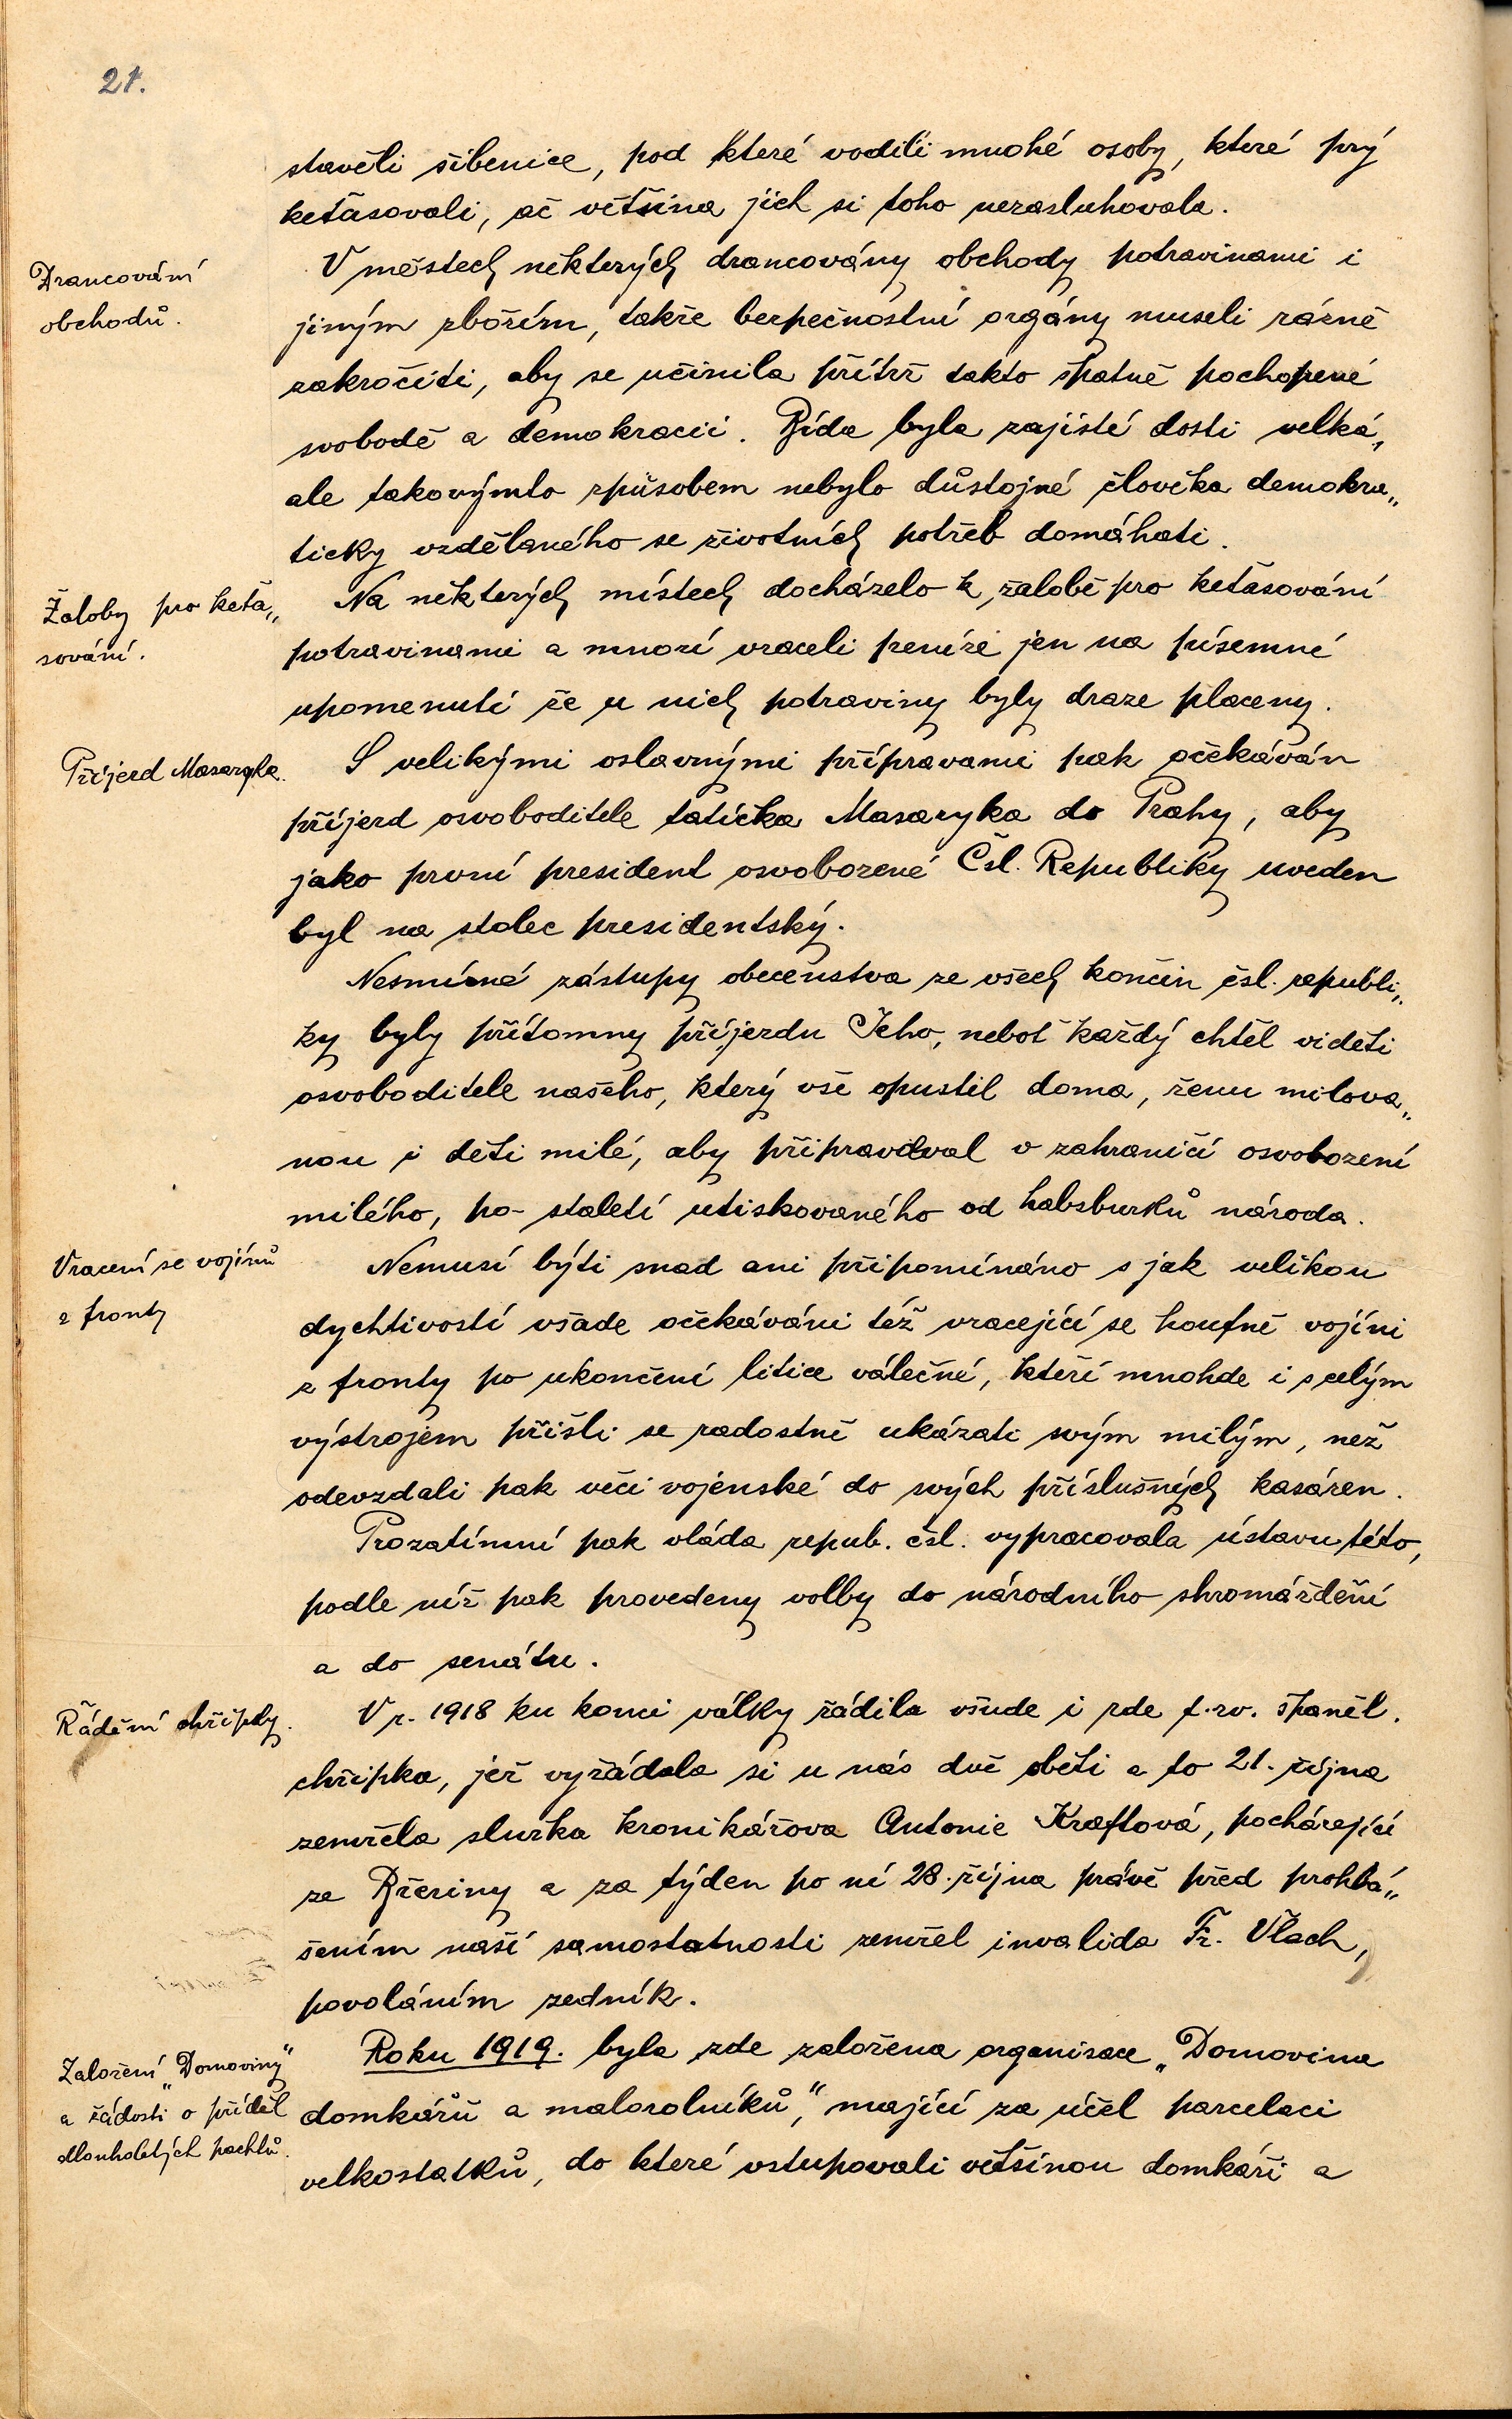 21.
stavěli šibenice, pod které vodili mnohé osoby, které prý
keťasovali, ač většina jich si toho nezasluhovala.
Drancování
obchodů.
V městech některých drancovány obchody potravinami i
jiným zbožím, takže bezpečnostní orgány museli rázně
zakročiti, aby se učinila přítrž takto špatně pochopené
svobodě a demokracii. Bída byla zajisté dosti velká,
ale takovýmto způsobem nebylo důstojné člověka demokra„
ticky vzdělaného se životních potřeb domáhati.
Žaloby pro keťa„
sování.
Na některých místech docházelo k žalobě pro keťasování
potravinami a mnozí vraceli peníze jen na písemné
upomenutí že u nich potraviny byly draze placeny.
Příjezd Masaryka.
S velikými oslavnými přípravami pak očekáván
příjezd osvoboditele tatíčka Masaryka do Prahy, aby
jako první president osvobozené Čsl. Republiky uveden
byl na stolec presidentský.
Nesmírné zástupy obecenstva ze všech končin čsl. republi„
ky byly přítomny příjezdu Jeho, neboť každý chtěl viděti
osvoboditele našeho, který vše opustil doma, ženu milova„
nou i děti milé, aby připravoval v zahraničí osvobození
milého, po staletí utiskovaného od habsburků národa.
Vracení se vojínů
z fronty
Nemusí býti snad ani připomínáno s jak velikou
dychtivostí všade očekáváni též vracející se houfně vojíni
z fronty po ukončení litice válečné, kteří mnohde i s celým
výstrojem přišli se radostně ukázati svým milým, než
odevzdali pak věci vojenské do svých příslušných kasáren.
Prozatímní pak vláda repub. čsl. vypracovala ústavu této,
podle níž pak provedeny volby do národního shromáždění
a do senátu.
Řádění chřipky.
V r. 1918 ku konci války řádila všude i zde t. zv. španěl.
chřipka, jež vyžádala si u nás dvě oběti a to 21. října
zemřela služka kronikářova Antonie Kraftová, pocházející
ze Březiny a za týden po ní 28. října právě před prohlá„
šením naší samostatnosti zemřel invalida Fr. Vlach,
povoláním zedník.
Založení „Domoviny“
a žádosti o příděl
dlouholetých pachtů.
Roku 1919. byla zde založena organisace „Domovina
domkářů a malorolníků,“ mající za účel parcelaci
velkostatků, do které vstupovali většinou domkáři a